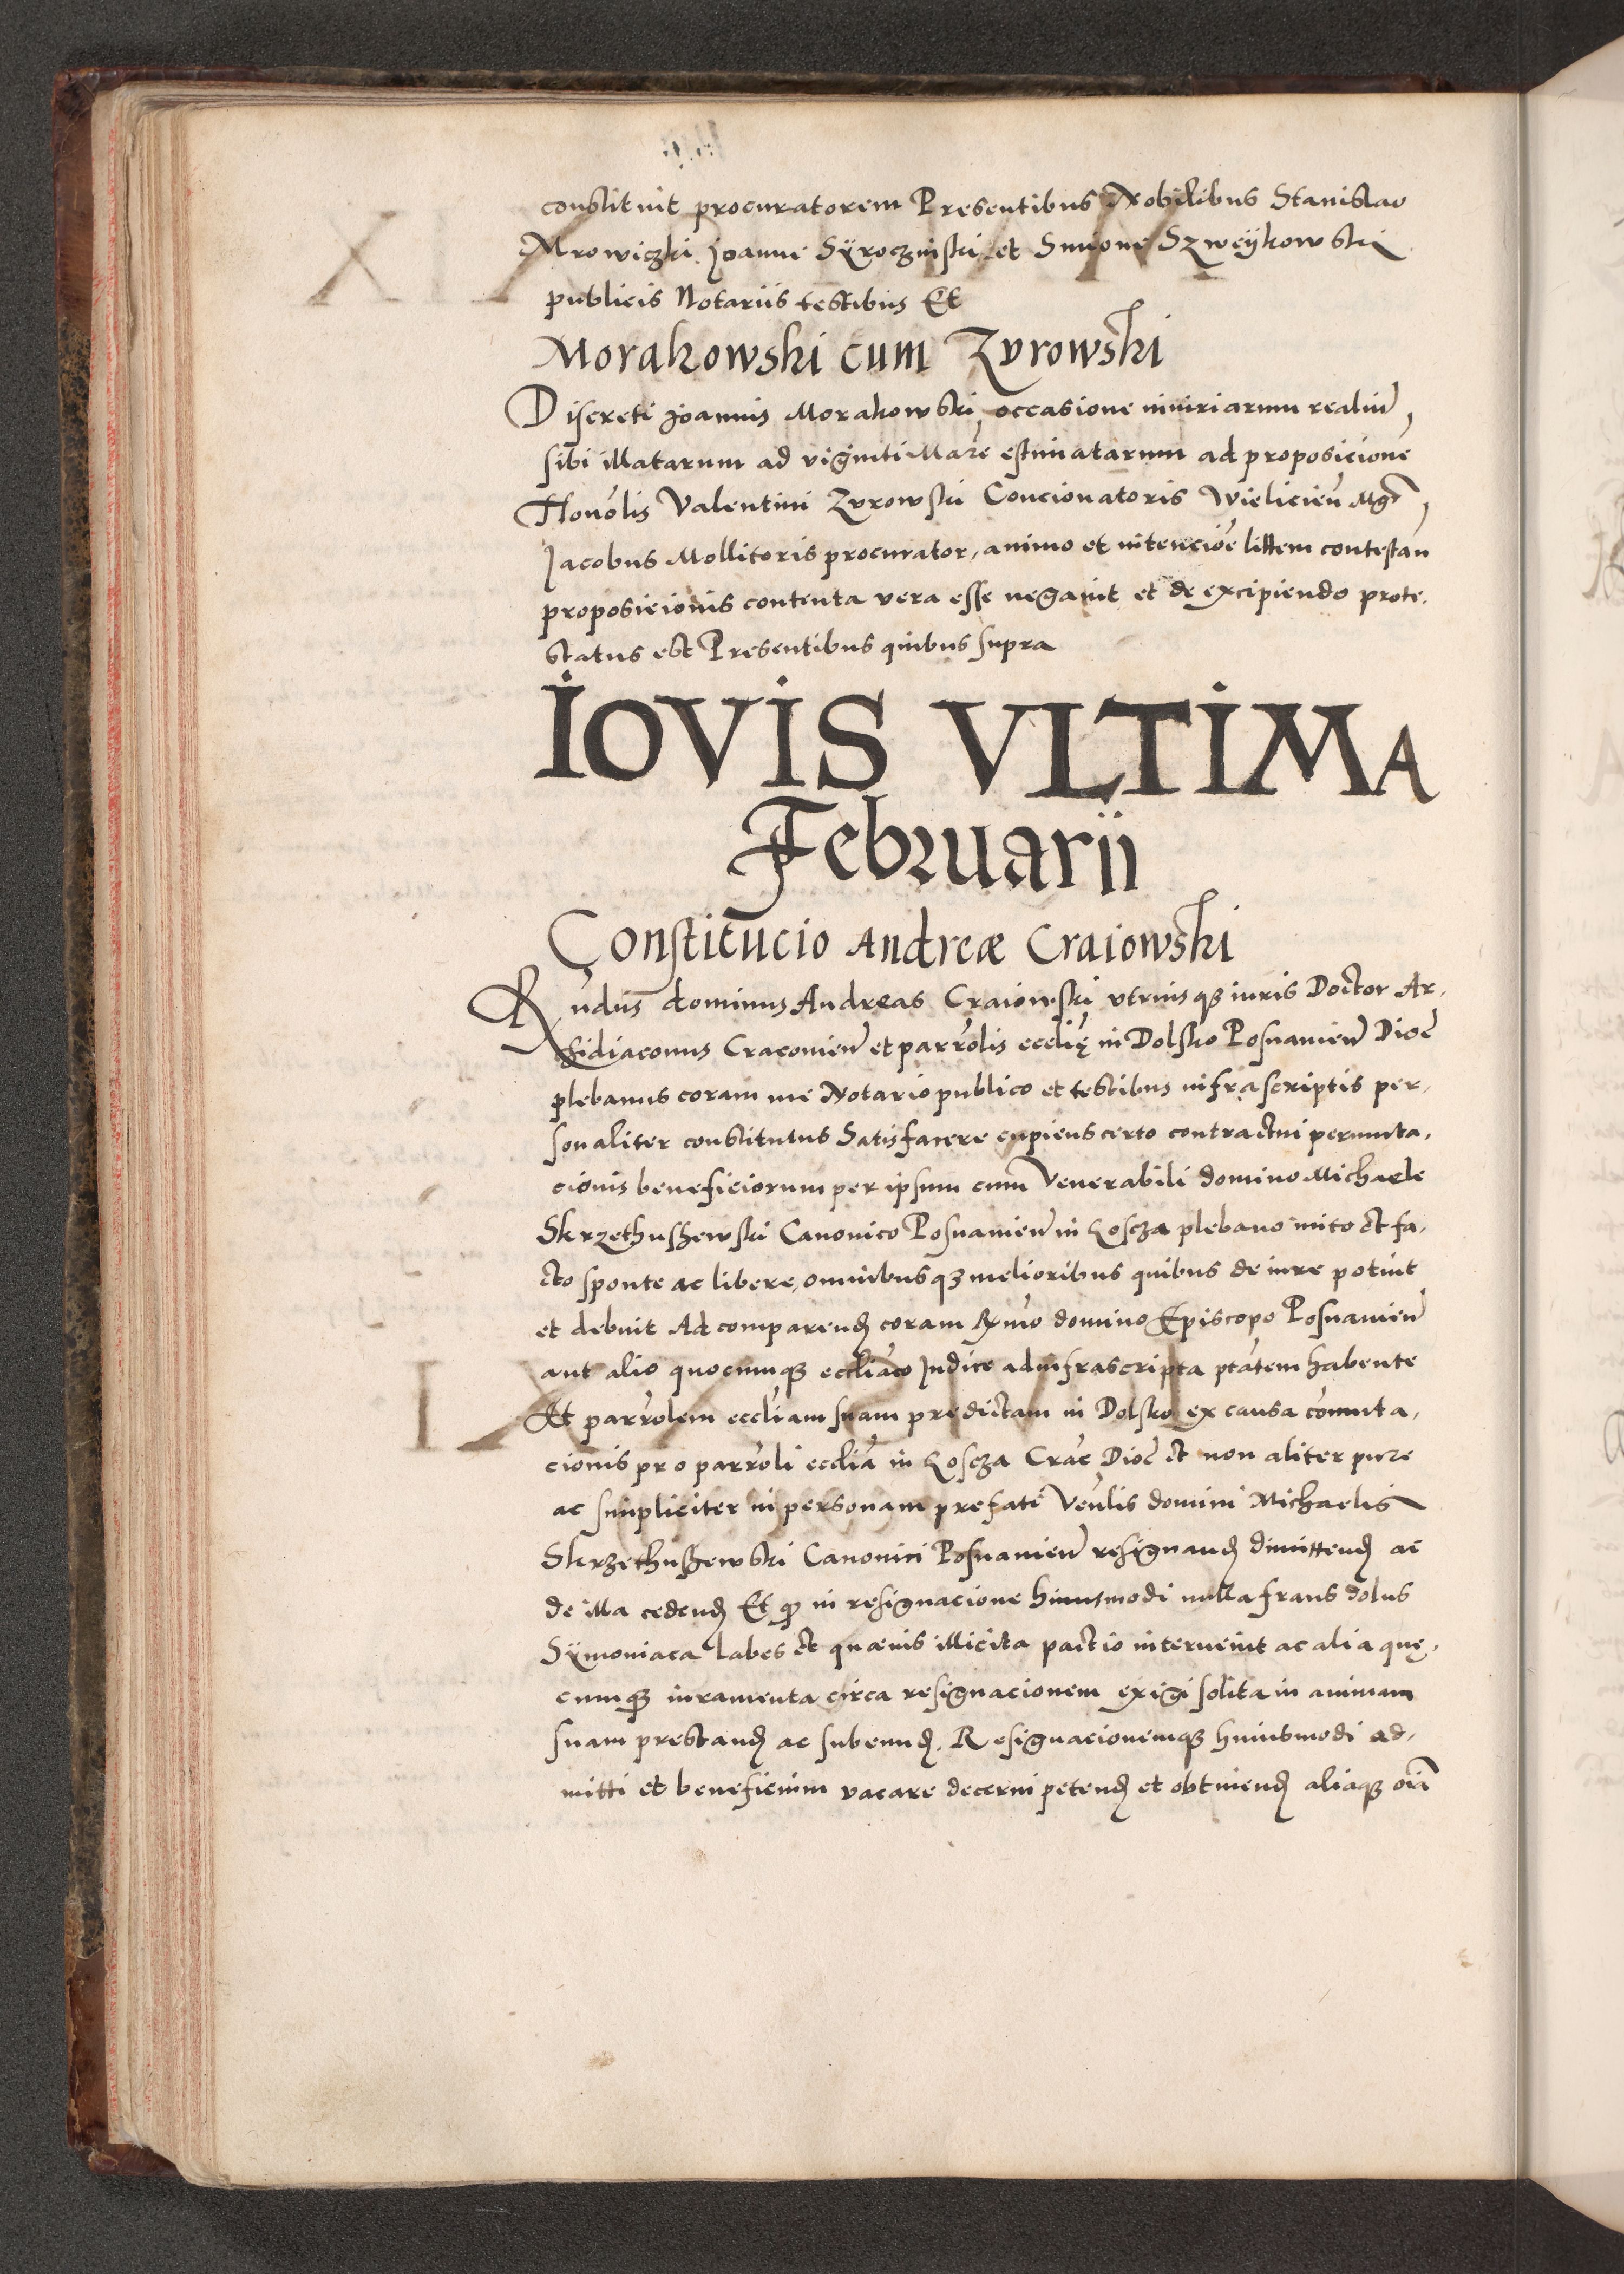 constituit procuratorem Presentibus Nobilibus Stanislao
Mrowiczki Joanne Sÿroczinski et Simone Szweÿkowski
publicis Notariis testibus Et
Morakowski cum Zvrowski
Discreti Joannis Morakowski, occasione iniuriarum realiū
sibi illatarum ad viginti Marc̄ estimatarum ad proposicionē
Honōlis Valentini Zvrowski Concionatoris Wielicieñ Mgr̄
Jacobus Mollitoris procurator, animo et intenciōe littem contestan̄
proposicionis contenta vera esse negauit et de excipiendo prote,
status est Presentibus quibus supra
IOVIS VLTIMA
Februarii
Constitucio Andreæ Craiowski
Rn̄dus dominus Andreas Craiowski vtriusqȝ iuris Doctor Ar,
chidiaconus Cracovieñ et parrōlis ecclię in Dolsko Posnanieñ Dioc̄
plebanus coram me Notario publico et testibus infrascriptis per,
sonaliter constitutus Satisfacere cupiens certo contractui permuta,
cionis beneficiorum per ipsum cum Venerabili domino Michaele
Skrzethusszewski Canonico Posnanieñ in Loscza plebano inito et fa,
cto sponte ac libere, omnibusqȝ melioribus quibus de iure potuit
et debuit Ad comparenđ coram Rm̄o domino Episcopo Posnanieñ
aut alio quocumqȝ eccliāco Judice ad infrascripta ptātem habente
Et parrōlem eccliam suam predictam in Dolsko ex causa cōmuta,
cionis pro parrōli ecclīa in Loscza Crac̄ Dioc̄ et non aliter pure
ac simpliciter in personam prefati Venl̄is domini Michaelis
Skrzethusszewski Canonici Posnanieñ resignanđ dimittenđ ac
de illa cedenđ Et qȝ in resignacione huiusmodi nulla fraus dolus
Sÿmoniaca labes et quæuis illicita pactio interueint ac alia quę,
cumqȝ iuramenta circa resignacionem exigi solita in animam
suam prestanđ ac subeunđ. Resignacionemqȝ huiusmodi ad,
mitti et beneficium vacare decerni petenđ et obtinenđ aliaqȝ oīa